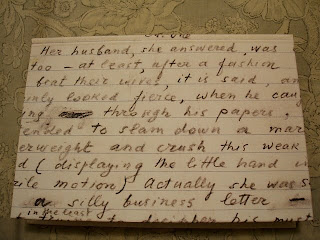 One
Her husband, she answered, was
too — at least, after a fashion
beat their wives, it is said, an
nly looked fierce, when he caug
ing through his papers.
ended to slam down a mar
erweight and crush this weak
d (displaying the little hand in
ile motion) Actually she was s
a silly business letter —
in the least
to decipher his must